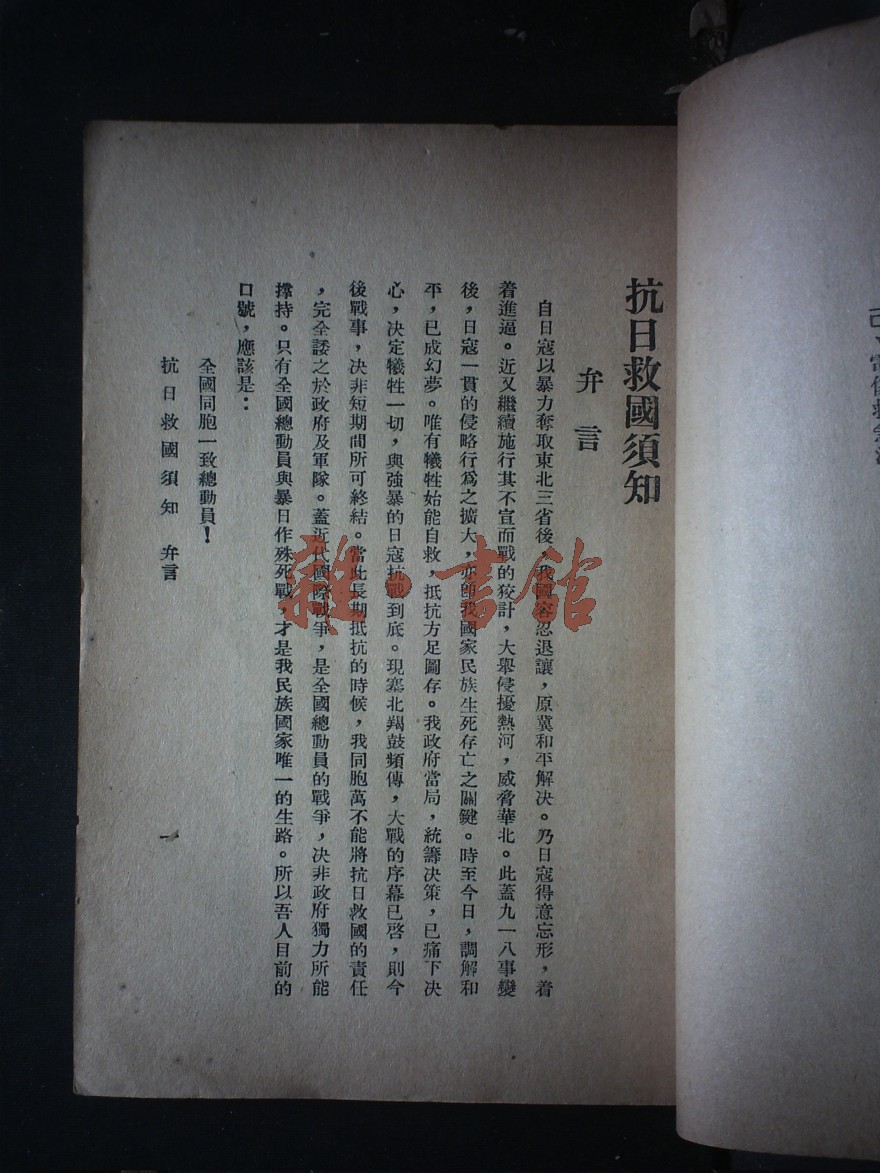 抗日救國須知
弁言
自日寇以暴力奪取東北三省後，我國容忍退讓，原冀和平解决。乃日寇得意忘形，着
着進逼。近又繼續施行其不宣而戰的狡計，大舉侵擾熱河，威脅華北。此蓋九一八事變
後，日寇一貫的侵略行爲之擴大，亦卽我國家民族生死存亡之關鍵。時至今日，調解和
平，已成幻夢。唯有犧牲始能自救，抵抗方足圖存。我政府當局，統籌决策，已痛下决
心，决定犧牲一切，與強暴的日寇抗戰到底。現塞北羯鼓頻傳，大戰的序幕已啓，則今
後戰事，决非短期間所可終結。當此長期抵抗的時候，我同胞萬不能將抗日救國的責任
，完全諉之於政府及軍隊。蓋近代國際戰爭，是全國總動員的戰爭，决非政府獨力所能
撐持。只有全國總動員與暴日作殊死戰，才是我民族國家唯一的生路。所以吾人目前的
口號，應該是：
全國同胞一致總動員！
抗日救國須知 弁言
一
雜·書館